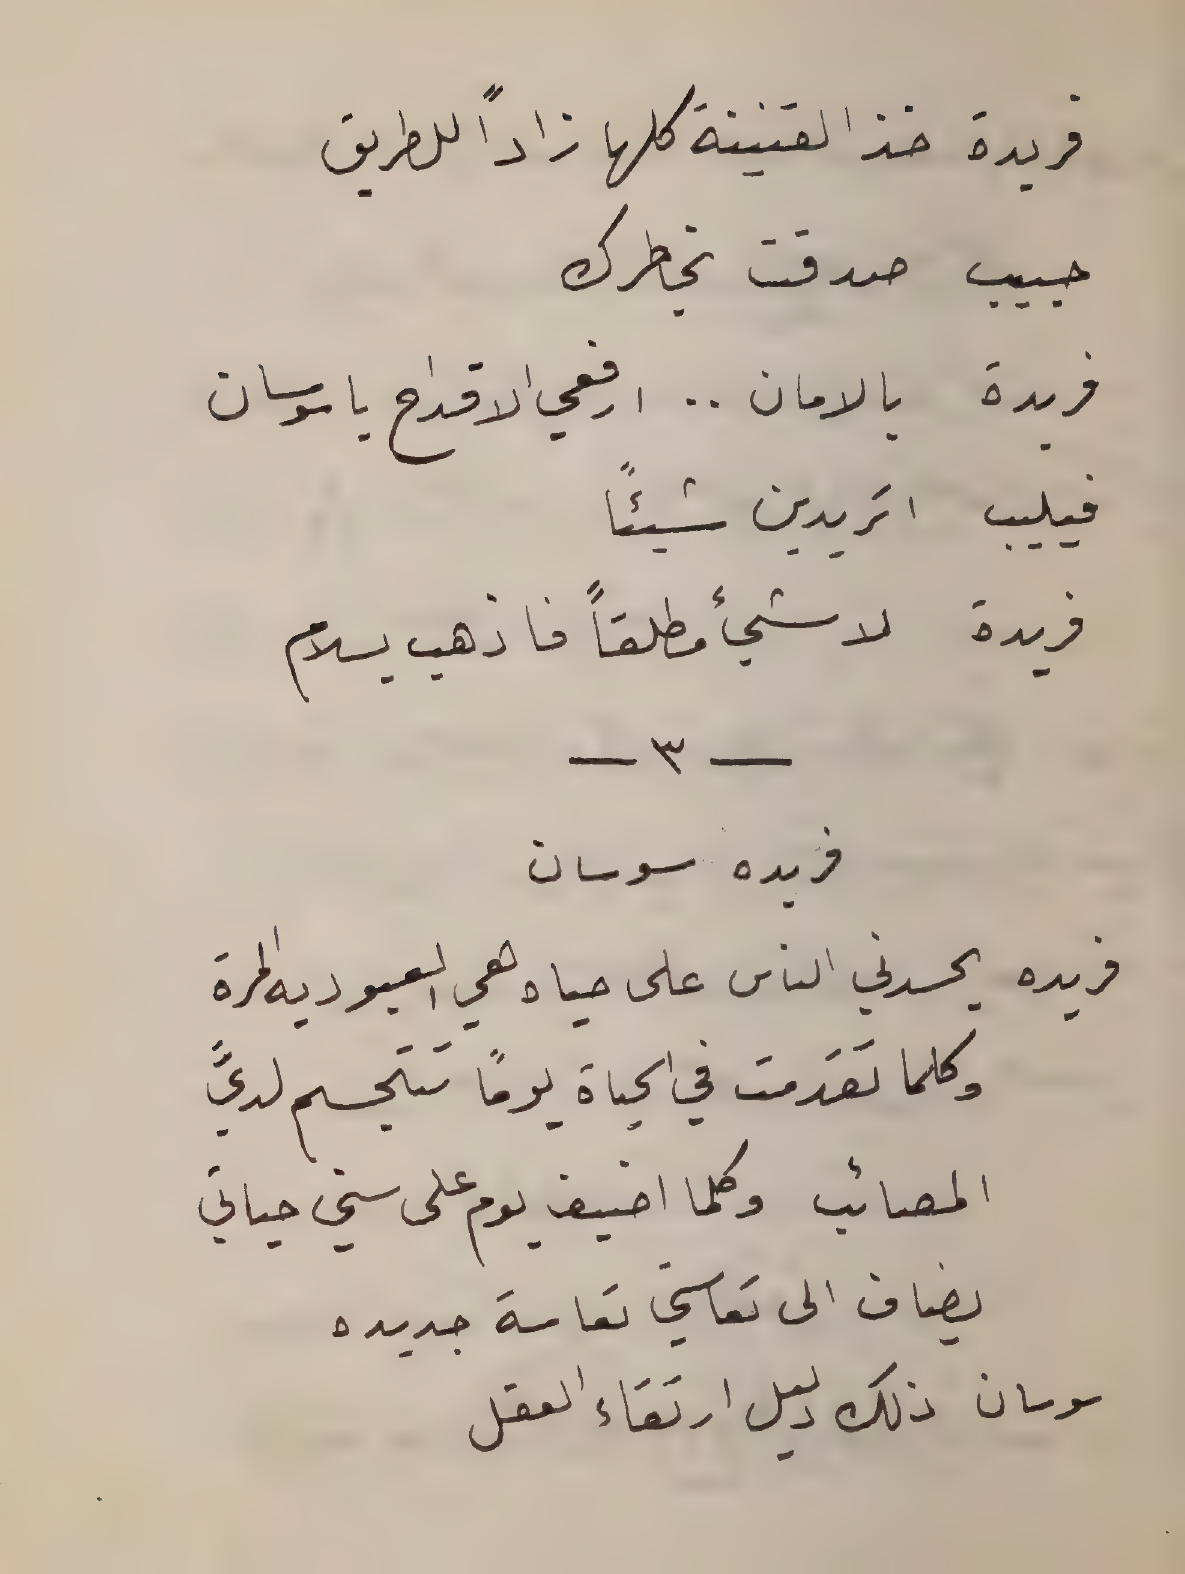 فريدة خذ القنينة كلها زاداً للطريق
حبيب صدقت بخاطرك
فريدة بالامان .. ارفعي الاقداح يا سوسان
فيليب اتريدين شيئاً
فريدة لا شيئ مطلقاً فاذهب بسلام
— ٣ —
فريده سوسان
فريده يحسدني الناس على حياه هي العبوديه المرة
وكلما تقدمت في الحياة يوماً تتجسم لديَّ
المصائب وكلما اضيف يوم على سني حياتي
يضاف الى تعاستي تعاسة جديده
سوسان ذلك دليل ارتقاء العقل